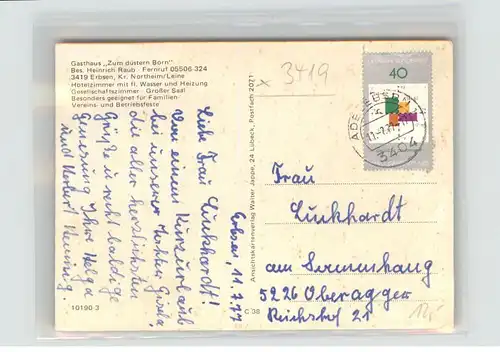 Gasthaus „Zum düstern Born"
Bes. Heinrich Raub · Fernruf 05506 324
3419 Erbsen, Kr. Northeim/Leine
Hotelzimmer mit fl. Wasser und Heizung
Gesellschaftszimmer · Großer Saal
Besonders geeignet für Familien-
Vereins- und Betriebsfeste
Erbsen, 11.7.77
Liebe Frau Linkhardt!
Von einem Kurzurlaub
bei unserer Tochter Gisela
die aller herzlichsten
Grüße u. recht baldige
Genesung Ihre Helga
und Herbert
10190 3
Ansichtskartenverlag Walter Jappe, 24 Lübeck, Postfach 2021
C 38
x 3419
40
ADELEBSEN
3404
Frau
Linkhardt
am Sommerhang
5226 Oberagger
Reichshof 21